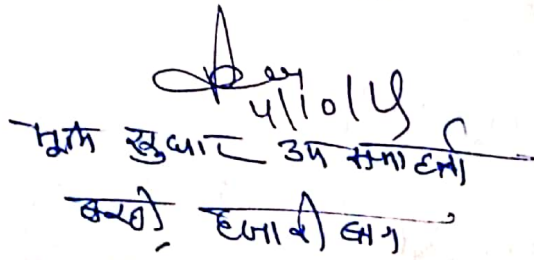 4/10/14
भूमि सुधार उप समाहर्ता
बरही, हजारीबाग